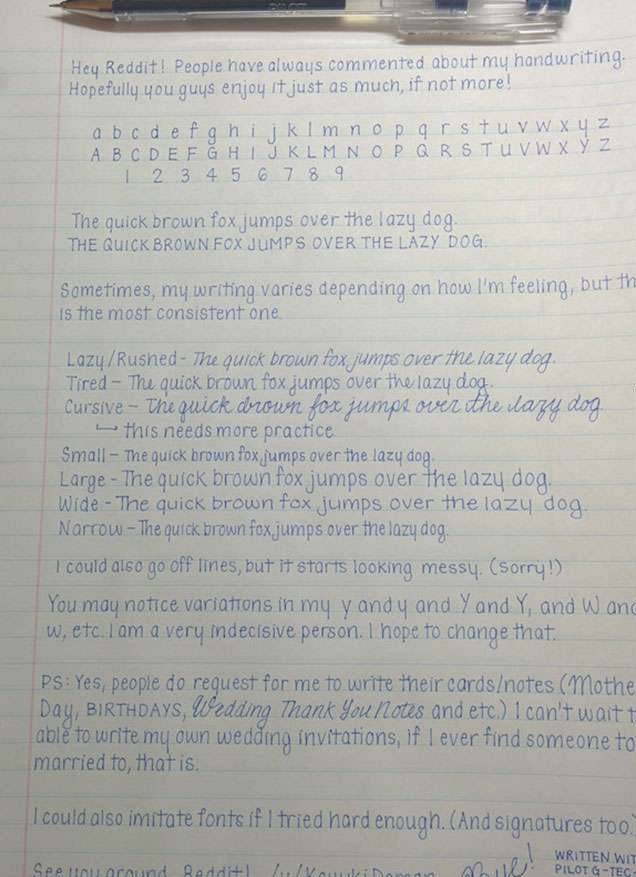 PILOT
Hey Reddit! People have always commented about my handwriting.
Hopefully you guys enjoy it just as much, if not more!
a b c d e f g h i j k l m n o p q r s t u v w x y z
A B C D E F G H I J K L M N O P Q R S T U V W X Y Z
1 2 3 4 5 6 7 8 9
The quick brown fox jumps over the lazy dog.
THE QUICK BROWN FOX JUMPS OVER THE LAZY DOG.
Sometimes, my writing varies depending on how I'm feeling, but th
is the most consistent one.
Lazy/Rushed - The quick brown fox jumps over the lazy dog.
Tired - The quick brown fox jumps over the lazy dog.
Cursive - The quick brown fox jumps over the lazy dog
↳ this needs more practice.
Small - The quick brown fox jumps over the lazy dog.
Large - The quick brown fox jumps over the lazy dog.
Wide - The quick brown fox jumps over the lazy dog.
Narrow - The quick brown fox jumps over the lazy dog.
I could also go off lines, but it starts looking messy. (Sorry!)
You may notice variations in my y and y and Y and Y, and W and
w, etc. I am a very indecisive person. I hope to change that.
PS: Yes, people do request for me to write their cards/notes (Mothe
Day, BIRTHDAYS, Wedding Thank You Notes and etc.) I can't wait t
able to write my own wedding invitations, if I ever find someone to
married to, that is.
I could also imitate fonts if I tried hard enough. (And signatures too.)
See you around Reddit! /u/
WRITTEN WIT
PILOT G-TEC